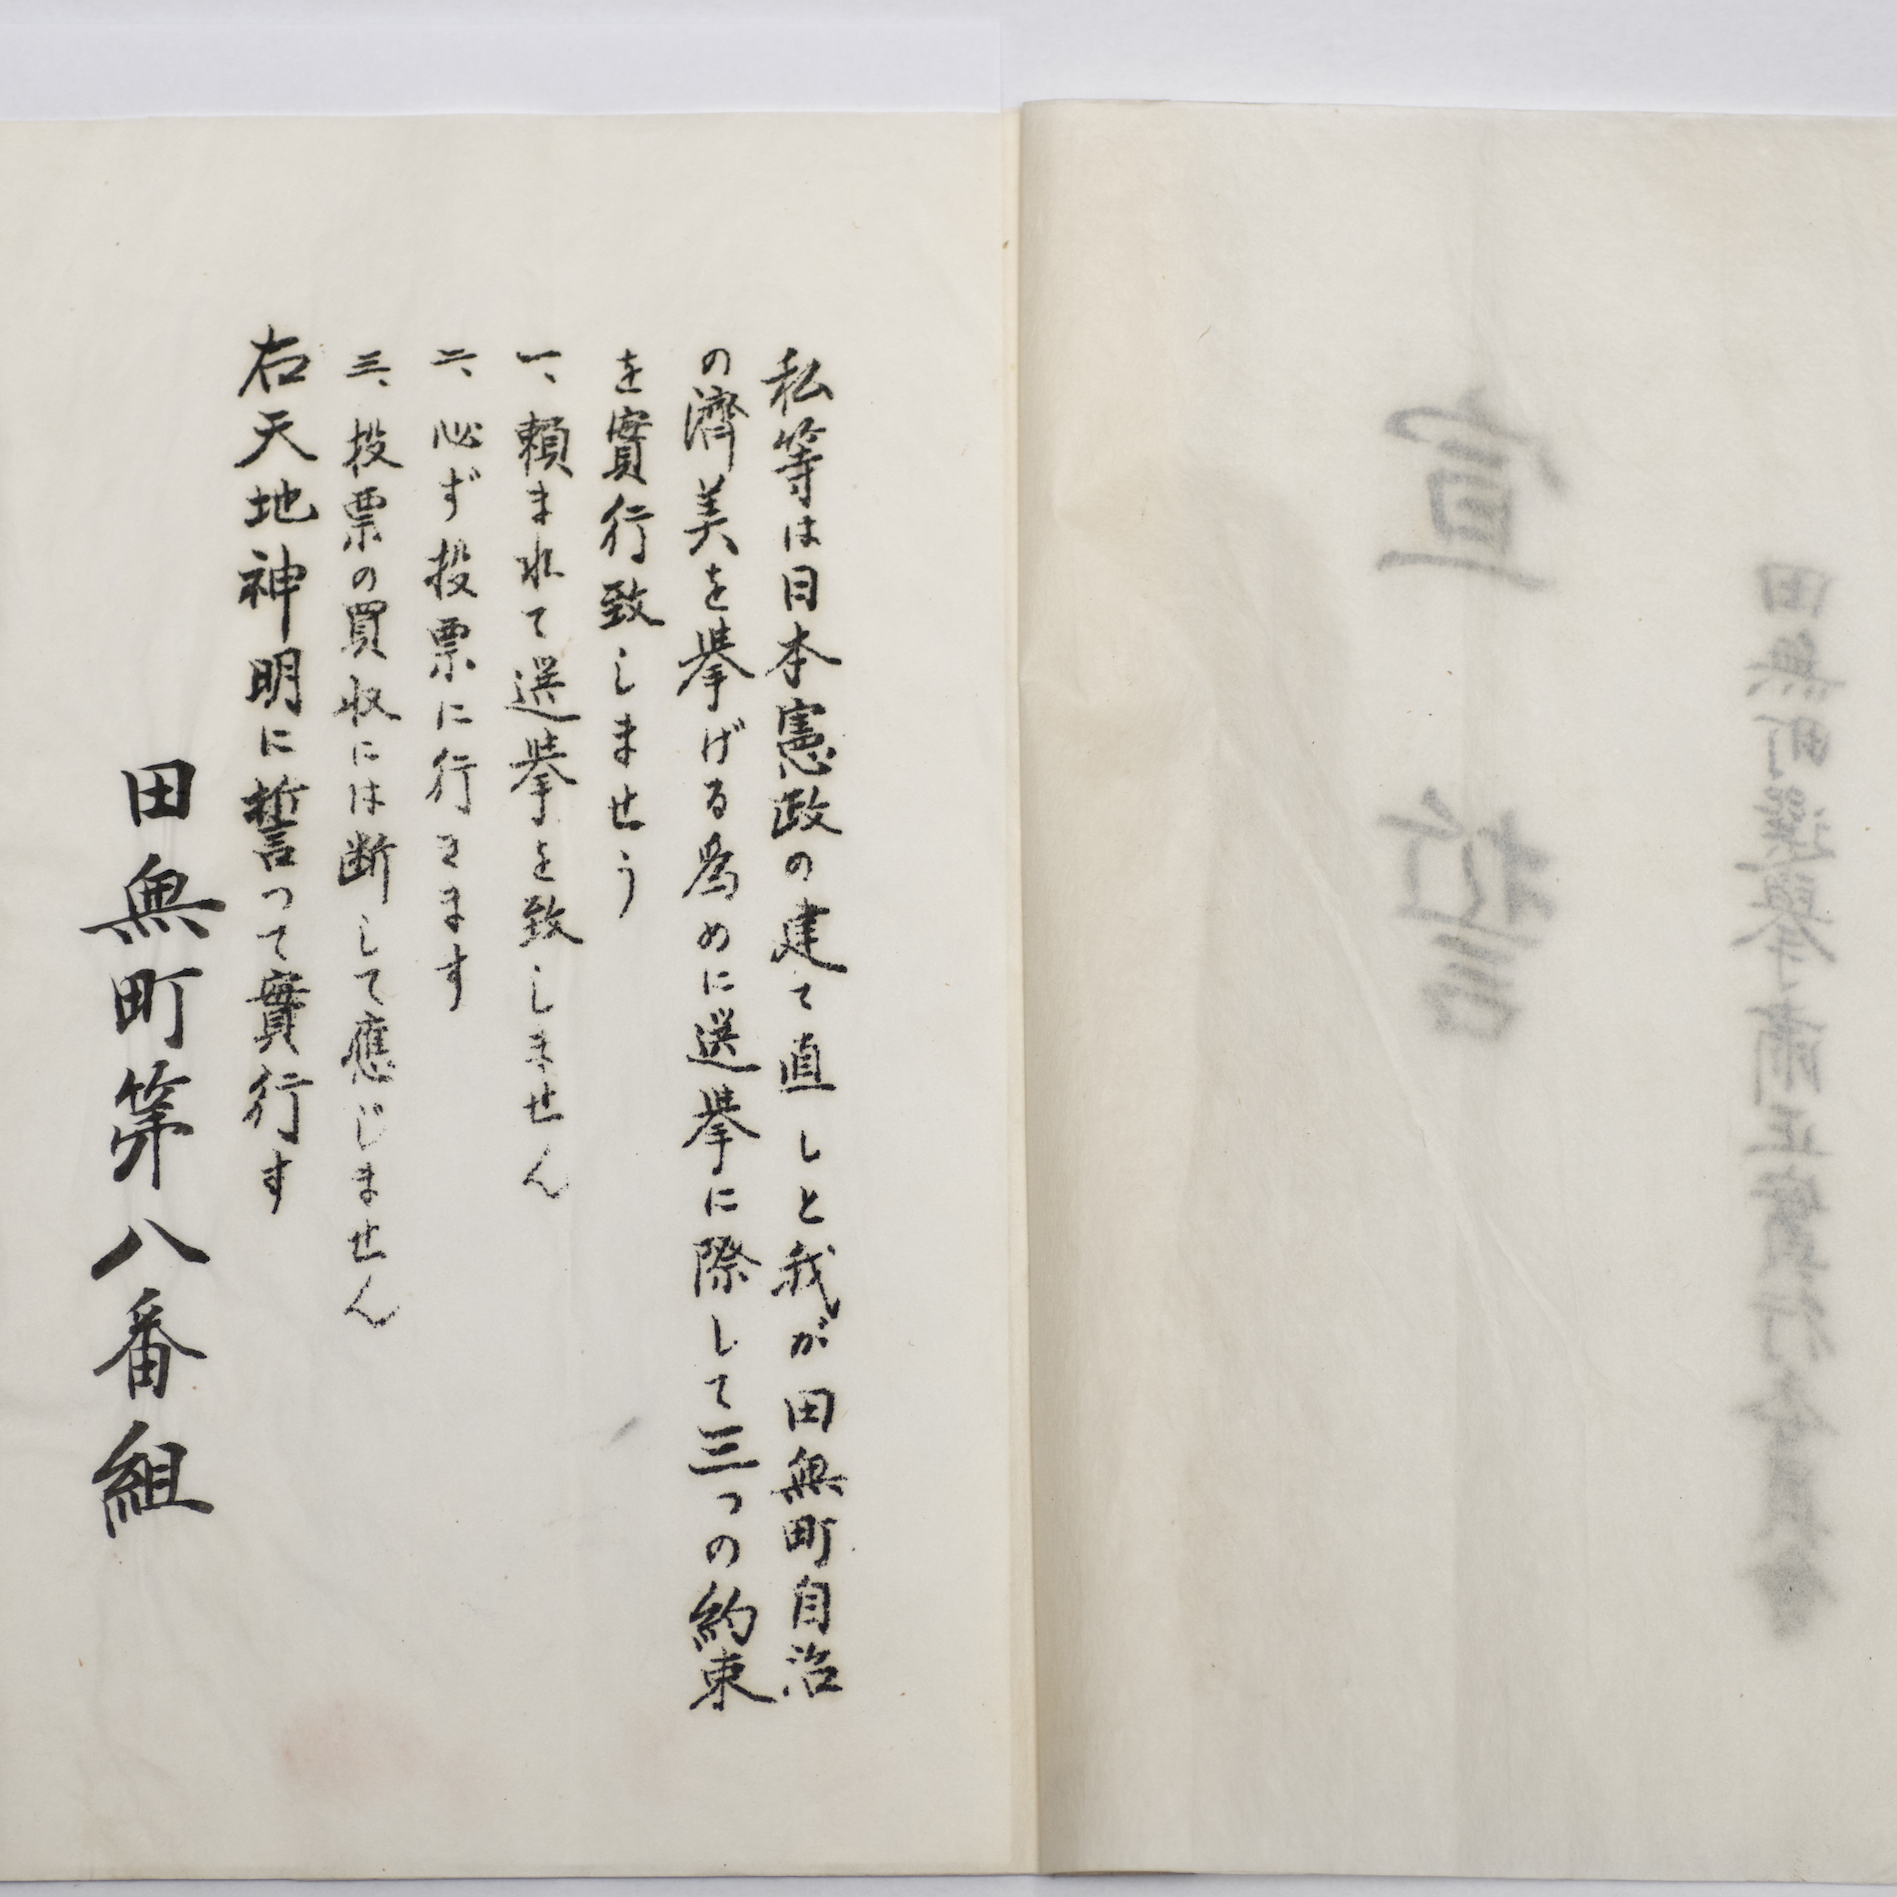 宣誓
田無町選擧肅正實行委員會
私等は日本憲政の建て直しと我が田無町自治
の濟美を挙げる為めに選挙に際して三つの約束
を實行致しませう
一、頼まれて選挙を致しません
二、必ず投票に行きます
三、投票の買収には断して應じません
右天地神明に誓って實行す
田無町第八番組